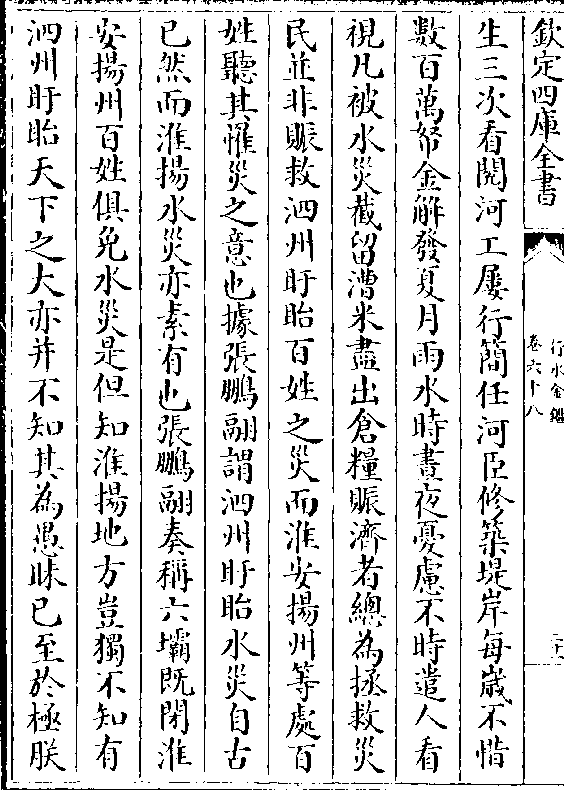 欽定四庫全書
行水金鑑
卷六十八
生三次看閱河工屢行簡任河臣修築堤岸每歲不惜
數百萬帑金解發夏月雨水時晝夜憂慮不時遣人看
視凡被水災截留漕米盡出倉糧賑濟者總為拯救災
民並非賑救泗州盱眙百姓之災而淮安揚州等處百
姓聽其罹災之意也據張鵬翮謂泗州盱眙水災自古
已然而淮揚水災亦素有也張鵬翮奏稱六壩既閉淮
安揚州百姓俱免水災是但知淮揚地方豈獨不知有
泗州盱眙天下之大亦并不知其為愚昧已至於極朕